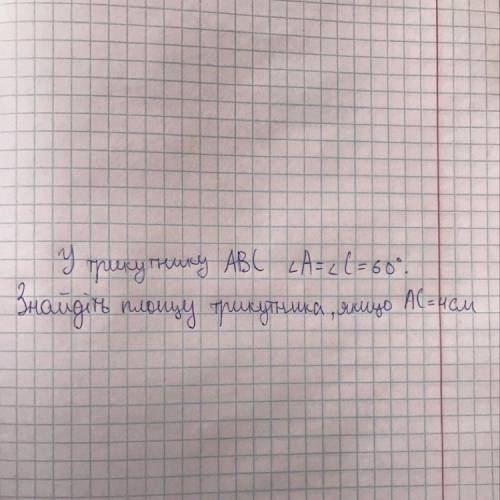 У трикутнику ABC ∠A=∠C=60°.
Знайдіть площу трикутника, якщо AC=4см